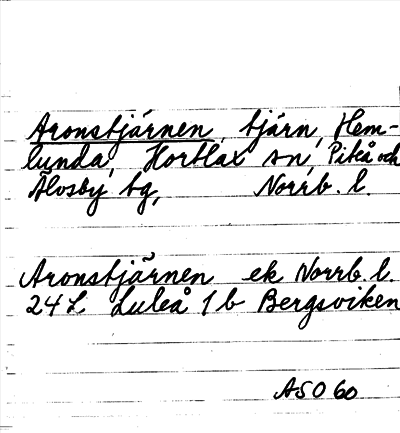 Aronstjärnen, tjärn, Hem-
lunda, Hortlax sn, Piteå och
Älvsby tg, Norrb. l.
Aronstjärnen ek Norrb. l.
24 L Luleå 1 b Bergsviken
ASO 60